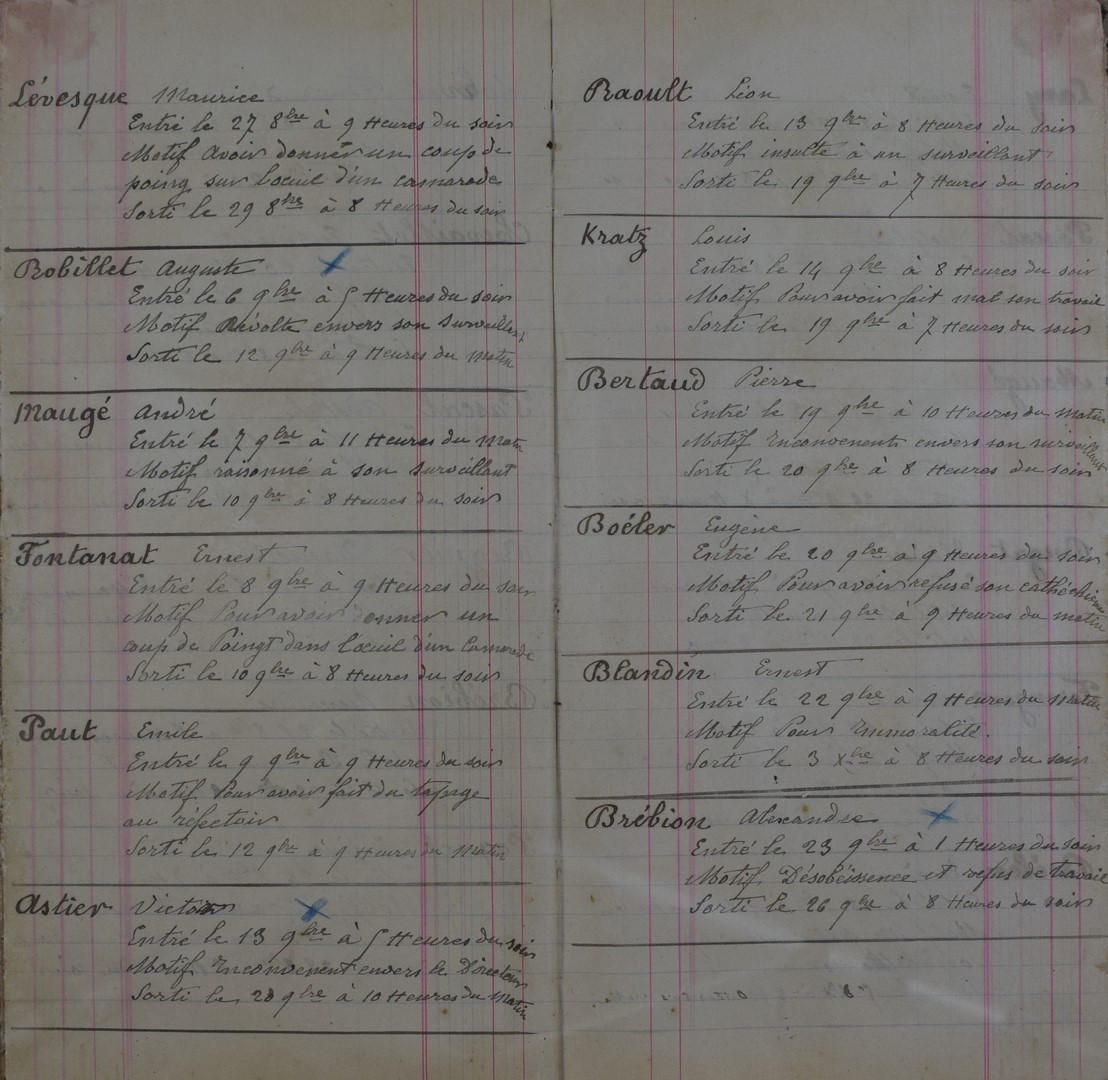 Lévesque Maurice
Entré le 27 8bre à 9 Heures du soir
Motif avoir donnér un coup de
poing sur l'oeuil d'un camarade
Sorti le 29 8bre à 8 Heures du soir
Robillet Auguste
Entré le 6 9bre à 5 Heures du soir
Motif Révolte envers son surveillant
Sorti le 12 9bre à 9 Heures du matin
Maugé André
Entré le 7 9bre à 11 Heures du matin
Motif raisonné à son surveillant
Sorti le 10 9bre à 8 Heures du soir
Fontanat Ernest
Entré le 8 9bre à 9 Heures du soir
Motif Pour avoir donner un
coup de Poingt dans l'oeuil d'un Camarade
Sorti le 10 9bre à 8 Heures du soir
Paut Emile
Entré le 9 9bre à 9 Heures du soir
Motif Pour avoir fait du tapage
au réfectoir
Sorti le 12 9bre à 9 Heures du matin
Astier Victor
Entré le 13 9bre à 5 Heures du soir
Motif Inconvenent envers le Directeur
Sorti le 20 9bre à 10 Heures du Matin
Raoult Léon
Entré le 13 9bre à 8 Heures du soir
Motif insulte à un surveillant
Sorti le 19 9bre à 7 Heures du soir
Kratz Louis
Entré le 14 9bre à 8 Heures du soir
Motif Pour avoir fait mal son travail
Sorti le 19 9bre à 7 Heures du soir
Bertaud Pierre
Entré le 19 9bre à 10 Heures du matin
Motif Inconvenent envers son surveillant
Sorti le 20 9bre à 8 Heures du soir
Boéler Eugène
Entré le 20 9bre à 9 Heures du soir
Motif Pour avoir refusé son cathéchisme
Sorti le 21 9bre à 9 Heures du matin
Blandin Ernest
Entré le 22 9bre à 9 Heures du Matin
Motif Pour Immoralité.
Sorti le 3 Xbre à 8 Heures du soir
Brébion Alexandre
Entré le 23 9bre à 1 Heures du soir
Motif Désobéissence et refus de travail
Sorti le 26 9bre à 8 Heures du soir